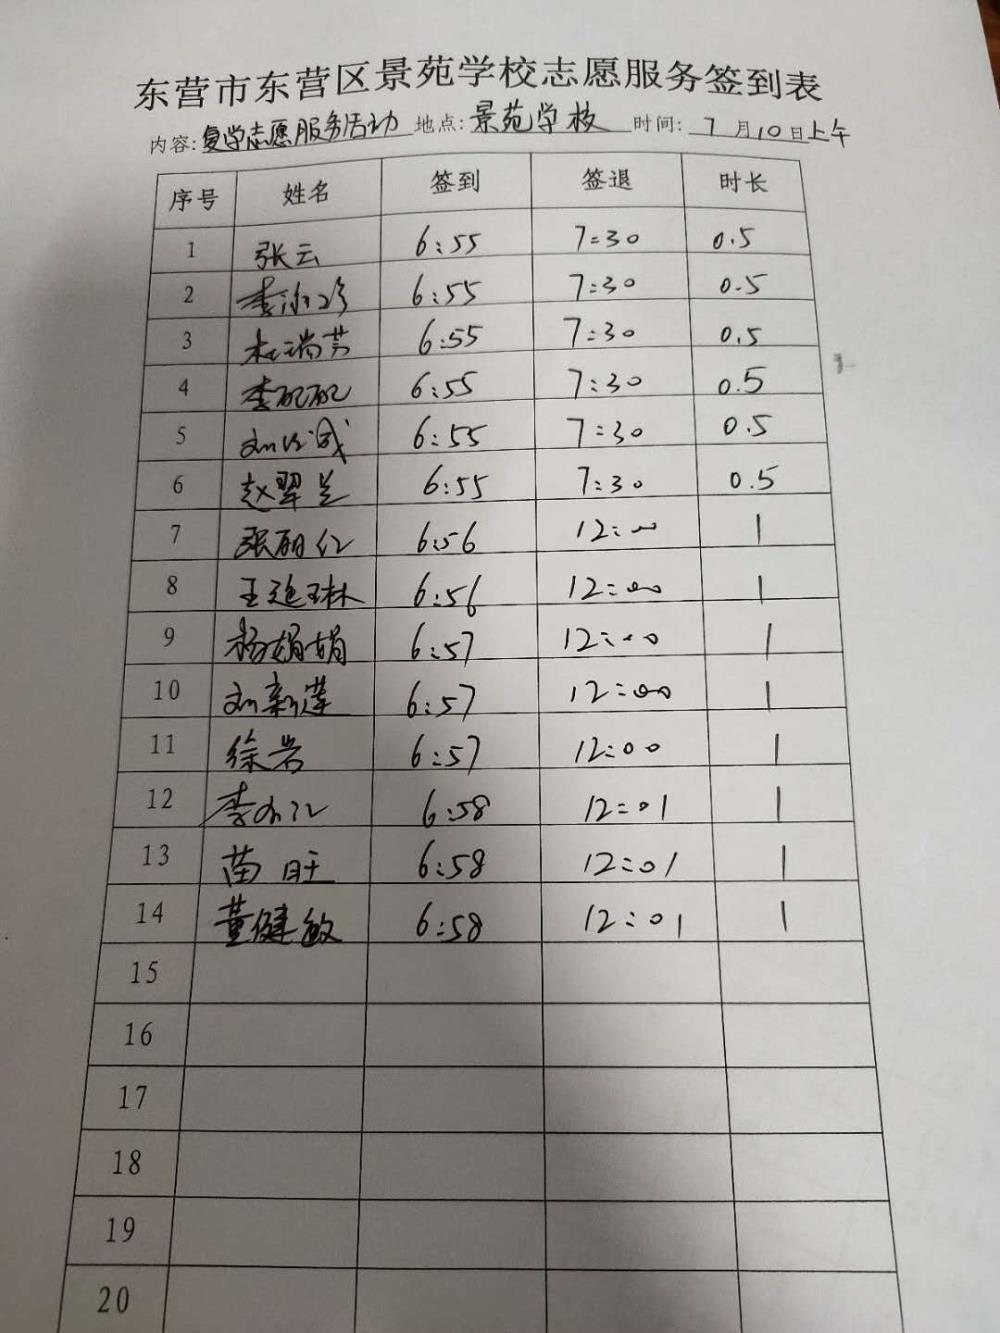 东营市东营区景苑学校志愿服务签到表
内容:复学志愿服务活动 地点:景苑学校 时间:7月10日上午
序号 姓名 签到 签退 时长
1 张云 6:55 7:30 0.5
2 6:55 7:30 0.5
3 杜瑞芳 6:55 7:30 0.5
4 李配配 6:55 7:30 0.5
5 6:55 7:30 0.5
6 赵翠兰 6:55 7:30 0.5
7 张丽红 6:56 12:00 1
8 6:56 12:00 1
9 杨娟娟 6:57 12:00 1
10 刘新莲 6:57 12:00 1
11 徐岩 6:57 12:00 1
12 6:58 12:01 1
13 苗旺 6:58 12:01 1
14 董健敏 6:58 12:01 1
15
16
17
18
19
20